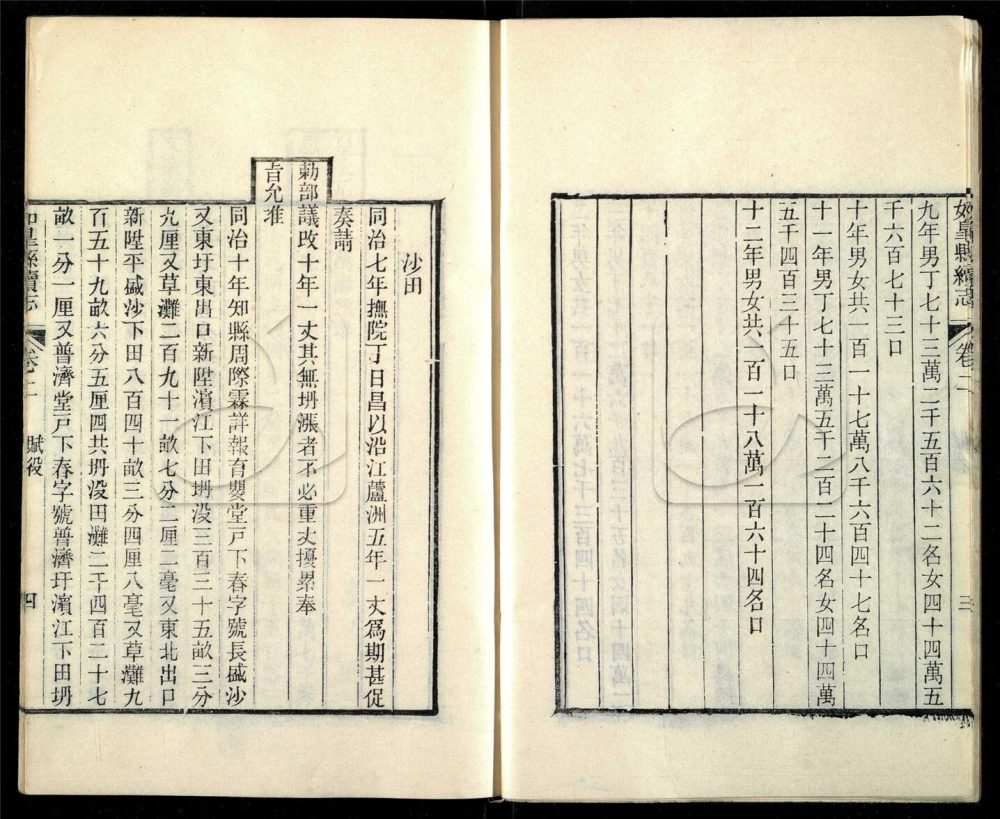 如皋縣續志 卷二 三
九年男丁七十三萬二千五百六十二名女四十四萬五
千六百七十三口
十年男女共一百一十七萬八千六百四十七名口
十一年男丁七十三萬五千二百二十四名女四十四萬
五千四百三十五口
十二年男女共一百一十八萬一百六十四名口
沙田
同治七年撫院丁日昌以沿江蘆洲五年一丈爲期甚促
奏請
勅部議改十年一丈其無坍漲者不必重丈擾累奉
旨允准
同治十年知縣周際霖詳報育嬰堂戸下春字號長盛沙
又東圩東出口新陞濱江下田坍没三百三十五畝三分
九厘又草灘二百九十一畝七分二厘二毫又東北出口
新陞平盛沙下田八百四十畝三分四厘八毫又草灘九
百五十九畝六分五厘四共坍没田灘二千四百二十七
畝一分一厘又普濟堂戸下春字號普濟圩濱江下田坍
如皋縣續志 卷二 賦役 四